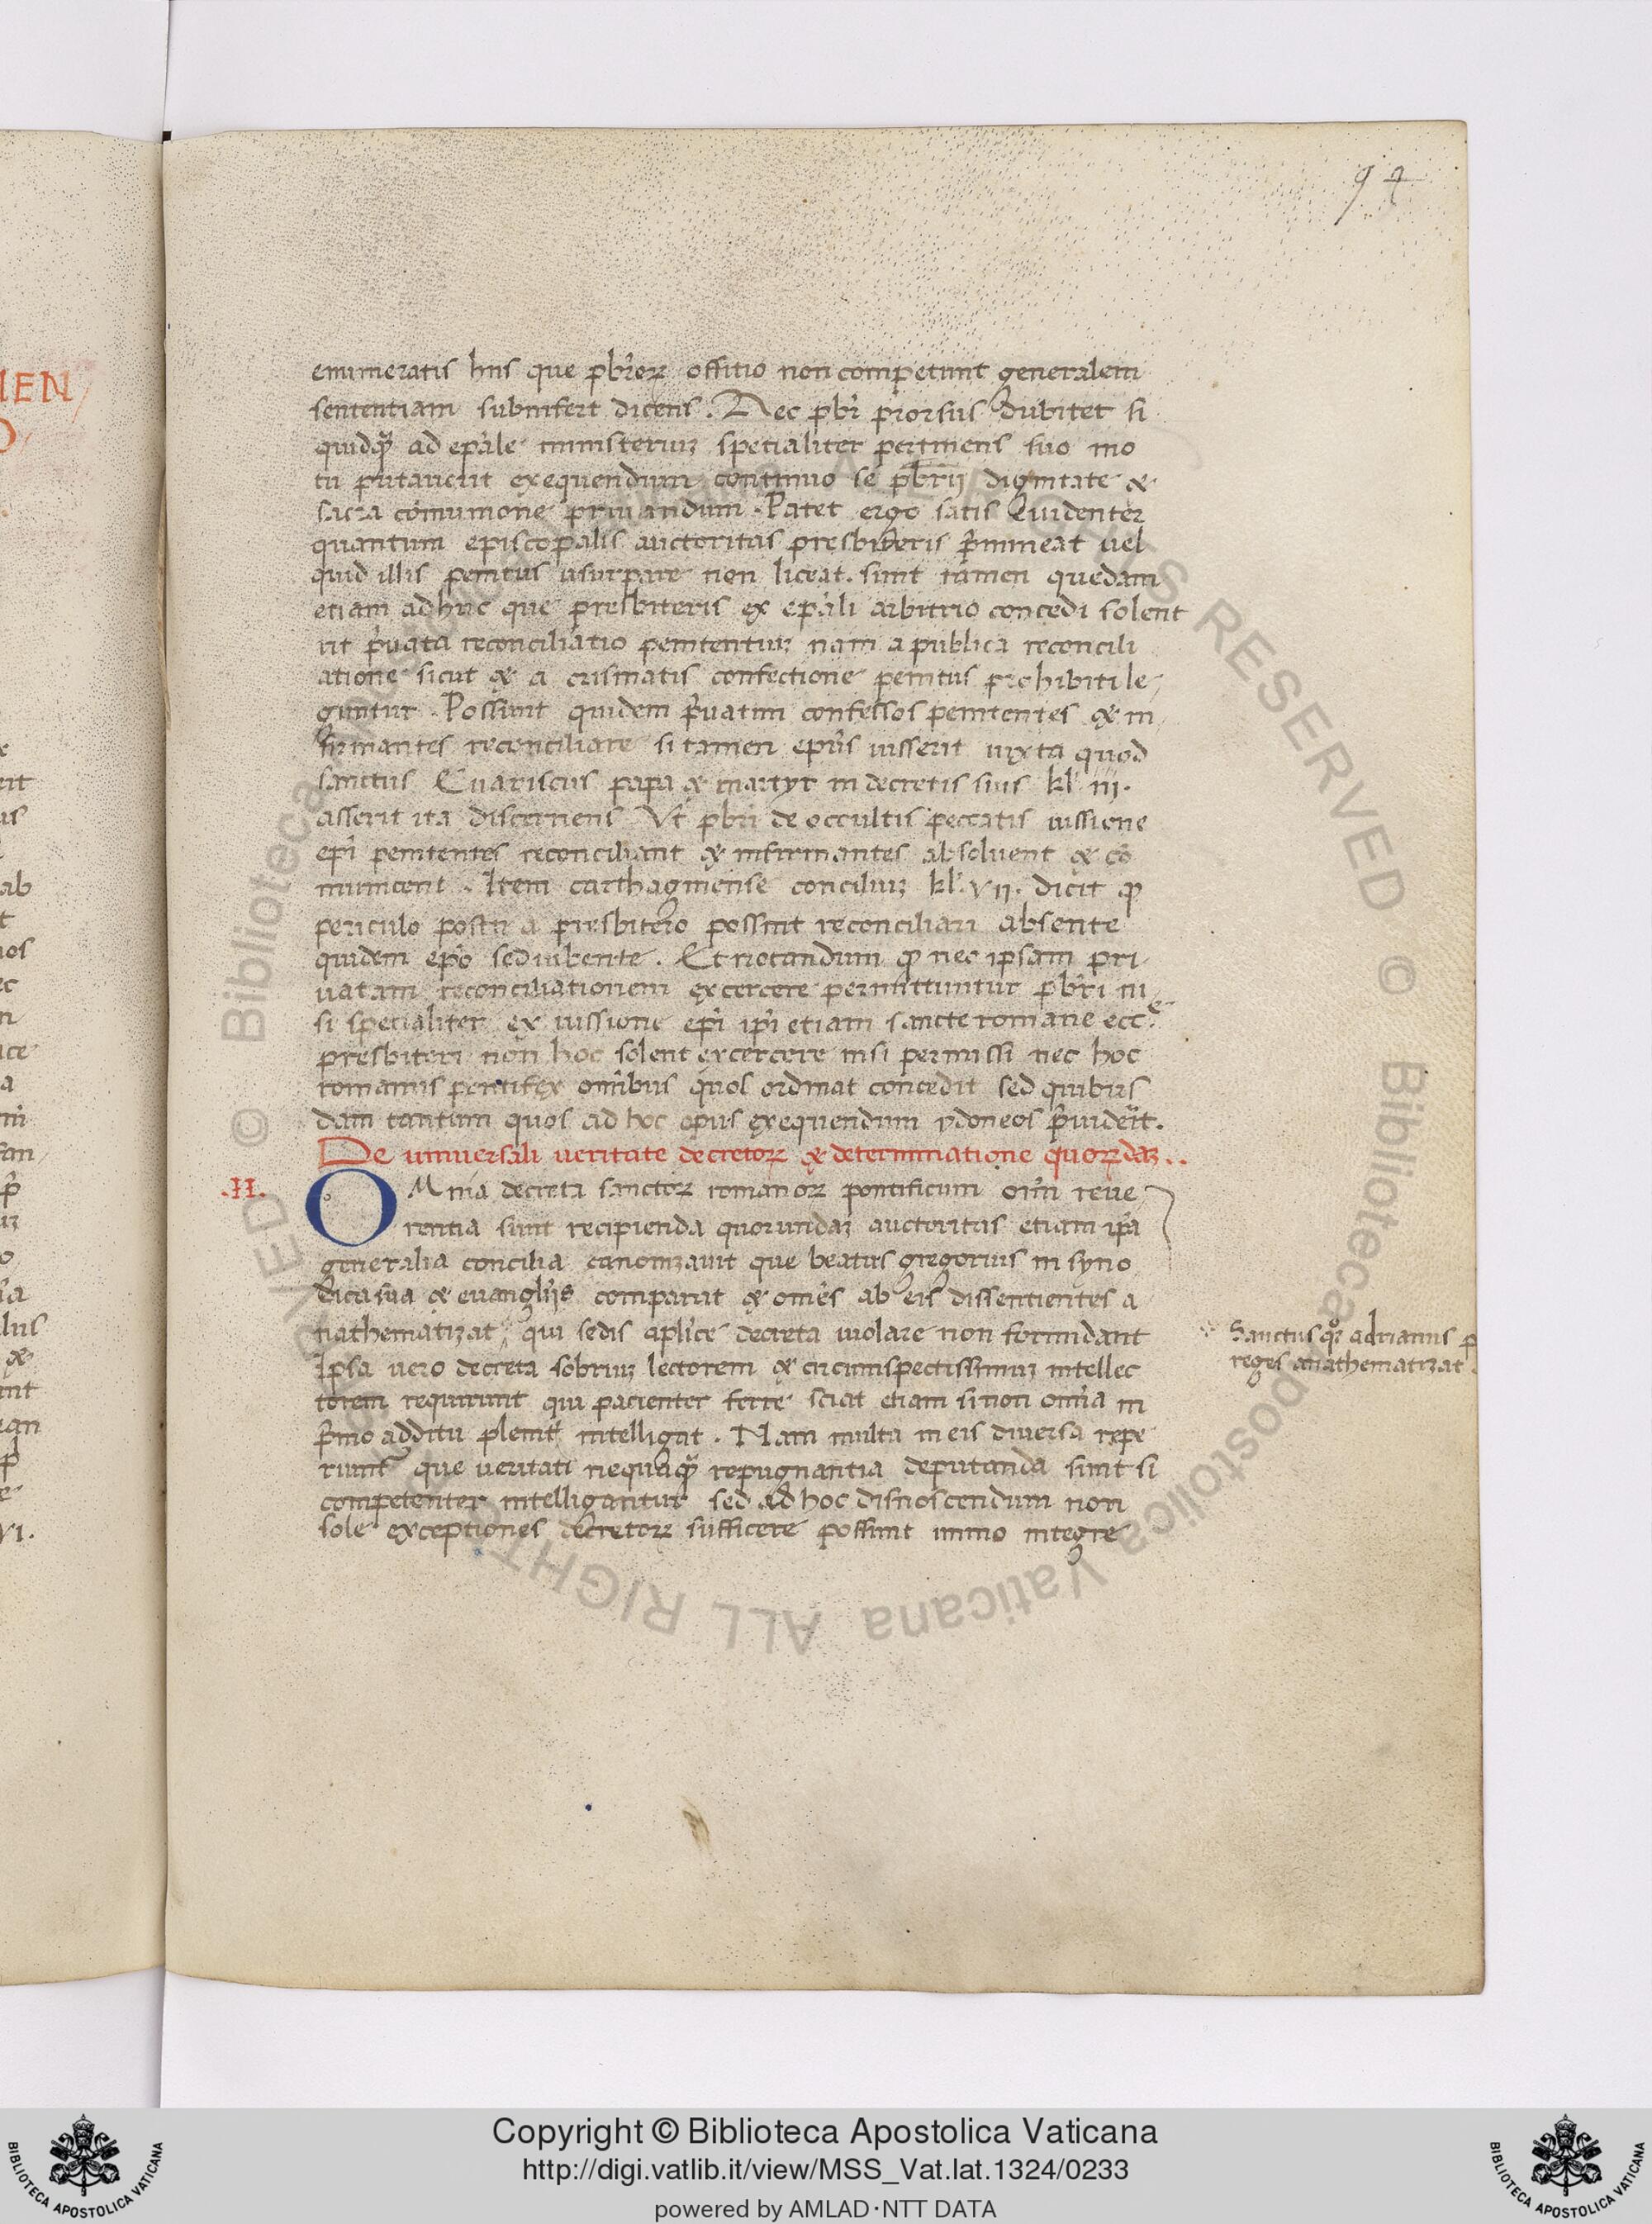 94
enumeratis hiis que pbr̄oꝝ offitio non competunt generalem
sententiam subinfert dicens. Nec pbr̄ prorsus dubitet si
quidq̄ ad epāle ministeriuꝫ specialiter pertinens suo mo
tu putauerit exequendum continuo se pbr̄ij dignitate &
sacra cōmunione priuandum. Patet ergo satis Euidenter
quantum episcopalis auctoritas presbiteris p̄mineat uel
quid illis penitus usurpare non liceat. sunt tamen quedam
etiam adhuc que presbiteris ex epāli arbitrio concedi solent
ut p̄uata reconciliatio penitentiuꝫ nam a publica reconcili
atione sicut & a crismatis confectione penitus prohibiti le
guntur. Possunt quidem p̄uatim confessos penitentes & in
firmantes reconciliare si tamen ep̄us iusserit iuxta quod
sanctus Euariscus papa & martyr in decretis suis kł iii.
asserit ita discernens Vt pbr̄i de occultis peccatis iussione
epī penitentes reconciliant & infirmantes absoluent & cō
municent. Item carthaginense conciliuꝫ kł. VII. dicit ꝙ
periculo positi a presbitero possint reconciliari absente
quidem epō sed iubente. Et notandum ꝙ nec ipsam pri
uatam reconciliationem excercere permittuntur pbr̄i ni
si specialiter ex iussione epī ip̄i etiam sancte romane eccᵉ.
presbiteri non hoc solent excercere nisi permissi nec hoc
romanus pontifex omībus quos ordinat concedit sed quibus
dam tantum quos ad hoc opus exequendum ydoneos p̄uiderīt.
De uniuersali ueritate decretoꝝ & determinatione quoꝝdaꝫ..
.II.
OMnia decreta sanctoꝝ romanoꝝ pontificum om̄i reue
rentia sunt recipienda quorundaꝫ auctoritas etiam ip̄a
generalia concilia canonizauit que beatus gregorius in syno
dica sua & euangl̄ijs comparat & omēs ab eis dissentientes a
nathematizat qui sedis apl̄ice decreta uiolare non formidant
Ipsa uero decreta sobriuꝫ lectorem & circumspectissimuꝫ intellec
torem requirunt qui pacienter ferre sciat etiam si non omīa in
p̄mo additu pleniť intelligat. Nam multa in eis diuersa repe
riunť que ueritati nequaq̄ repugnantia deputanda sunt si
competenter intelligantur sed ad hoc disnoscendum non
sole exceptiones decretoꝝ sufficere possunt immo integre
Sanctus qꝫ adrianus p
reges anathematizat.
IEN
O
Copyright © Biblioteca Apostolica Vaticana
http://digi.vatlib.it/view/MSS_Vat.lat.1324/0233
powered by AMLAD·NTT DATA
BIBLIOTECA APOSTOLICA VATICANA
BIBLIOTECA APOSTOLICA VATICANA
© Biblioteca Apostolica Vaticana ALL RIGHTS RESERVED © Biblioteca Apostolica Vaticana ALL RIGHTS RESERVED